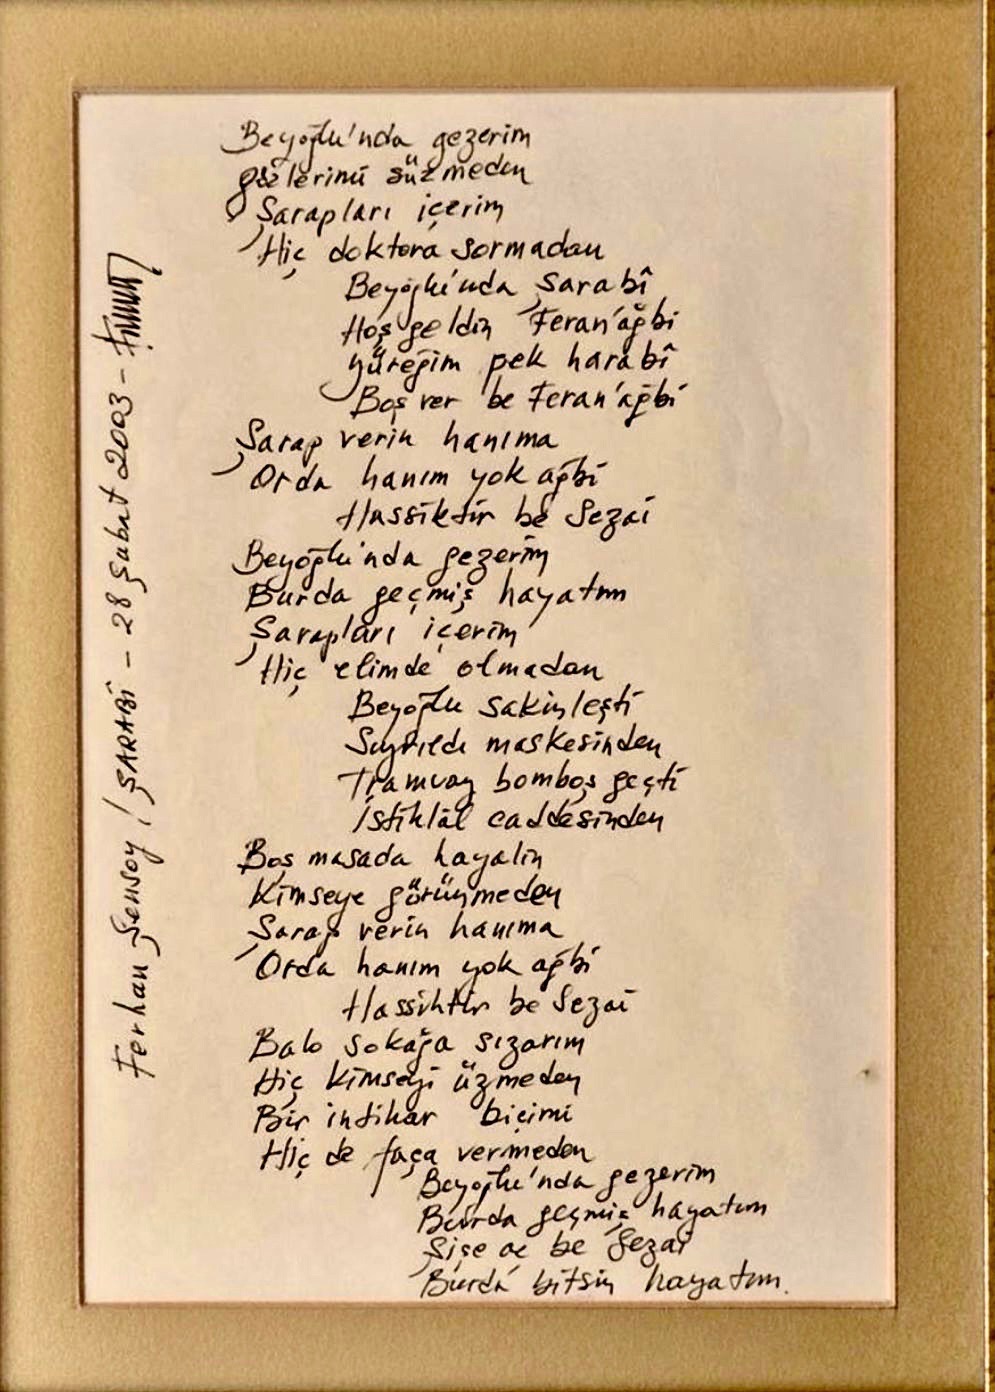 Beyoğlu'nda gezerim
gözlerimi süzmeden
Şarapları içerim
Hiç doktora sormadan
Beyoğlu'nda Şarabî
Hoş geldin Feran'ağbi
Yüreğim pek harabî
Boş ver be Feran'ağbi
Şarap verin hanıma
Orda hanım yok ağbi
Hassiktir be Sezai
Beyoğlu'nda gezerim
Burda geçmiş hayatım
Şarapları içerim
Hiç elimde olmadan
Beyoğlu sakinleşti
Sıyrıldı maskesinden
Tramvay bomboş geçti
İstiklâl caddesinden
Boş masada hayalin
Kimseye görünmeden
Şarap verin hanıma
Orda hanım yok ağbi
Hassiktir be Sezai
Balo sokağa sızarım
Hiç kimseyi üzmeden
Bir intihar biçimi
Hiç de faça vermeden
Beyoğlu'nda gezerim
Burda geçmiş hayatım
Şişe aç be Sezai
Burda bitsin hayatım.
Ferhan Şensoy / ŞARABÎ - 28 Şubat 2003 -